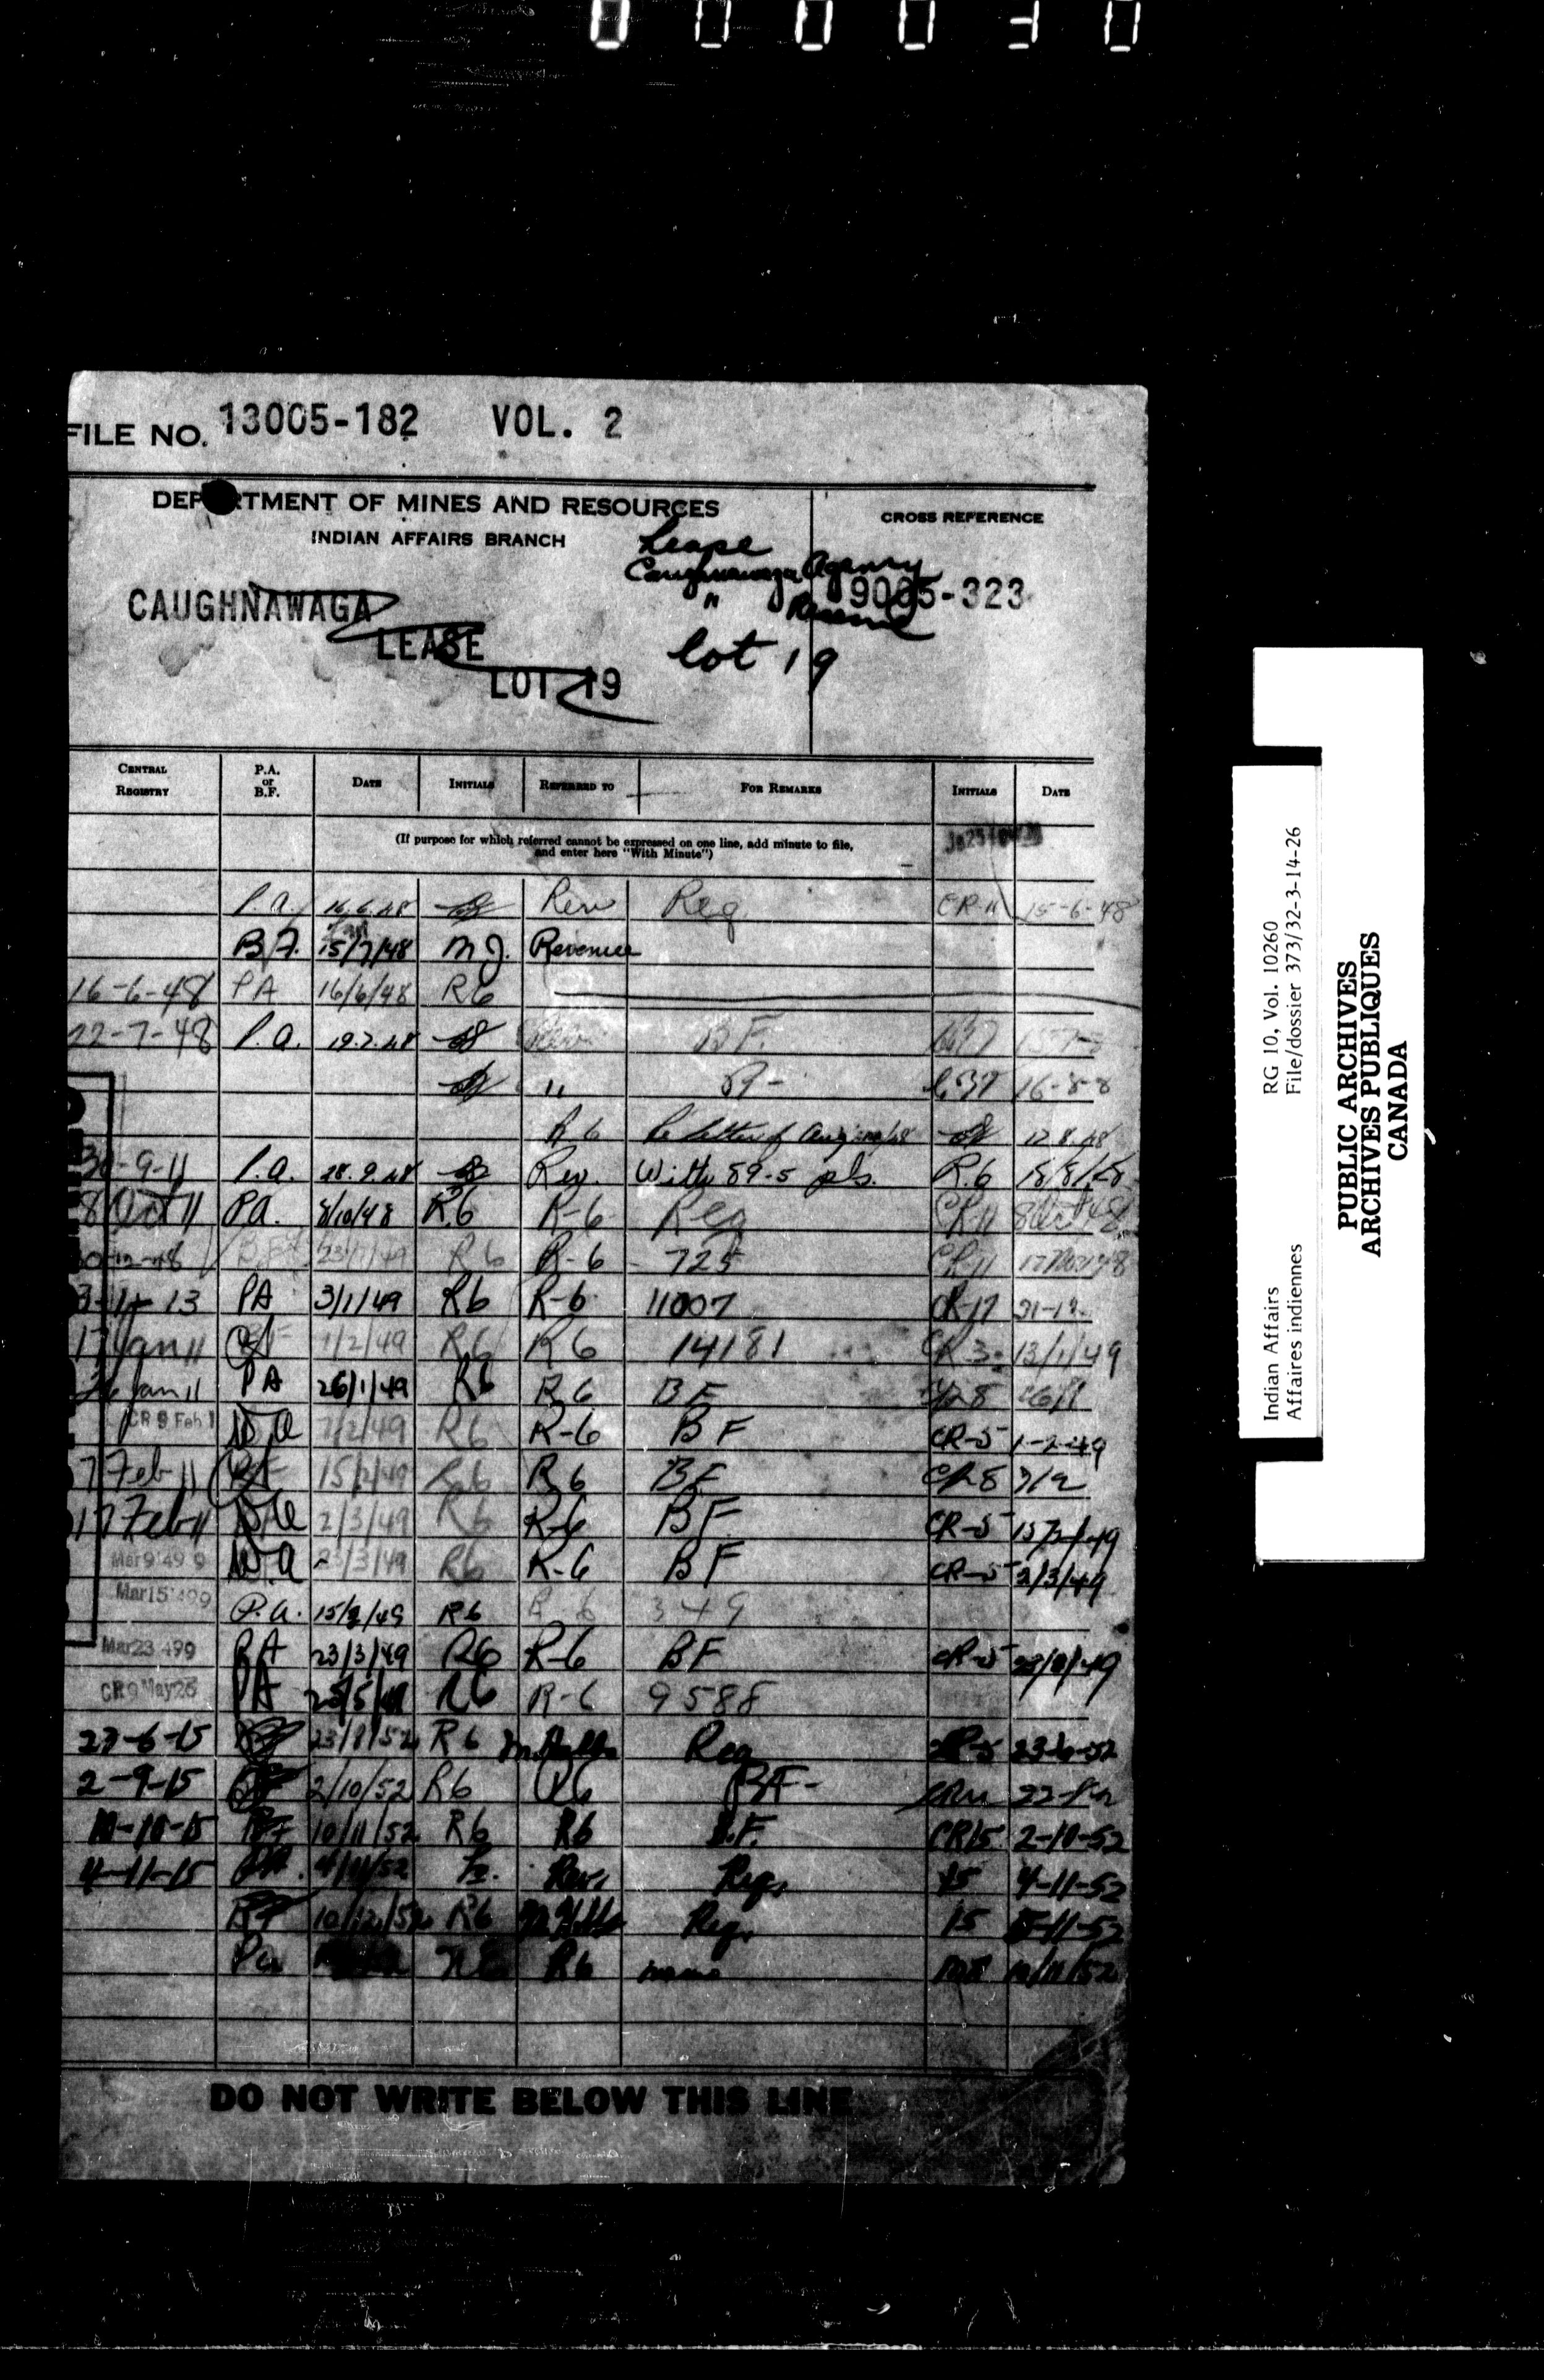 FILE NO. 13005-182 VOL. 2
DEP RTMENT OF MINES AND RESOURCES
INDIAN AFFAIRS BRANCH
CROSS REFERENCE
9005-323
Lease
Caughnawaga Agency
" Reserve
Lot 19
CAUGHNAWAGA
LEASE
LOT 19
CENTRAL REGISTRY P.A. or B.F. DATE INITIALS REFERRED TO FOR REMARKS INITIALS DATE
(If purpose for which referred cannot be expressed on one line, add minute to file,
and enter here "With Minute")
P.a. 16.6.48 Rev Reg CR 11 15-6-48
B.F. 15/7/48 M J. Revenue
16-6-48 PA 16/6/48 R6
22-7-48 P.a. 19.7.48 BF.
" 16-8-8
R6 Re letter of 17.8.48
30-9-11 P.a. 28.9.48 Rev. With 89-5 pls. R.6 18/8/48
8 Oct 11 PA. 8/10/48 R.6 R-6 Reg CR11 8 Oct 48
30-12-48 R6 R-6 725 CR11 17 Nov 48
3-1- 13 PA 3/1/49 R6 R-6 11007 CR-17 31-12
17 Jan 11 BF 1/2/49 R6 R6 14181 CR.3. 13/1/49
26 Jan 11 PA 26/1/49 R6 R6 BF
CR 9 Feb 7/2/49 R6 R-6 BF CR-5 1-2-49
7 Feb 11 BF 15/2/49 R6 R6 BF CR8 7/2
17 Feb 11 2/3/49 R6 R-6 BF CR-5 15/2/49
Mar 9 '49 9 R6 R-6 BF CR-5 2/3/49
Mar 15 '49 9 P.a. 15/3/49 R6 R-6 349
Mar 23 '49 9 PA 23/3/49 R6 R-6 BF CR-5 23/3/49
CR 9 May 26 PA 25/5/49 R6 R-6 9588
23-6-15 BF 23/8/52 R6 Reg 23-6-52
2-9-15 BF 2/10/52 R6 R6 BF-
10-10-15 BF 10/11/52 R6 R6 B.F. CR15 2-10-52
4-11-15 PA. 4/11/52 Rev. Reg. 15 4-11-52
BF 10/12/52 R6 Reg. 15 5-11-52
Pa R6 R6 10/11/52
DO NOT WRITE BELOW THIS LINE
Indian Affairs RG 10, Vol. 10260
Affaires indiennes File/dossier 373/32-3-14-26
PUBLIC ARCHIVES
ARCHIVES PUBLIQUES
CANADA